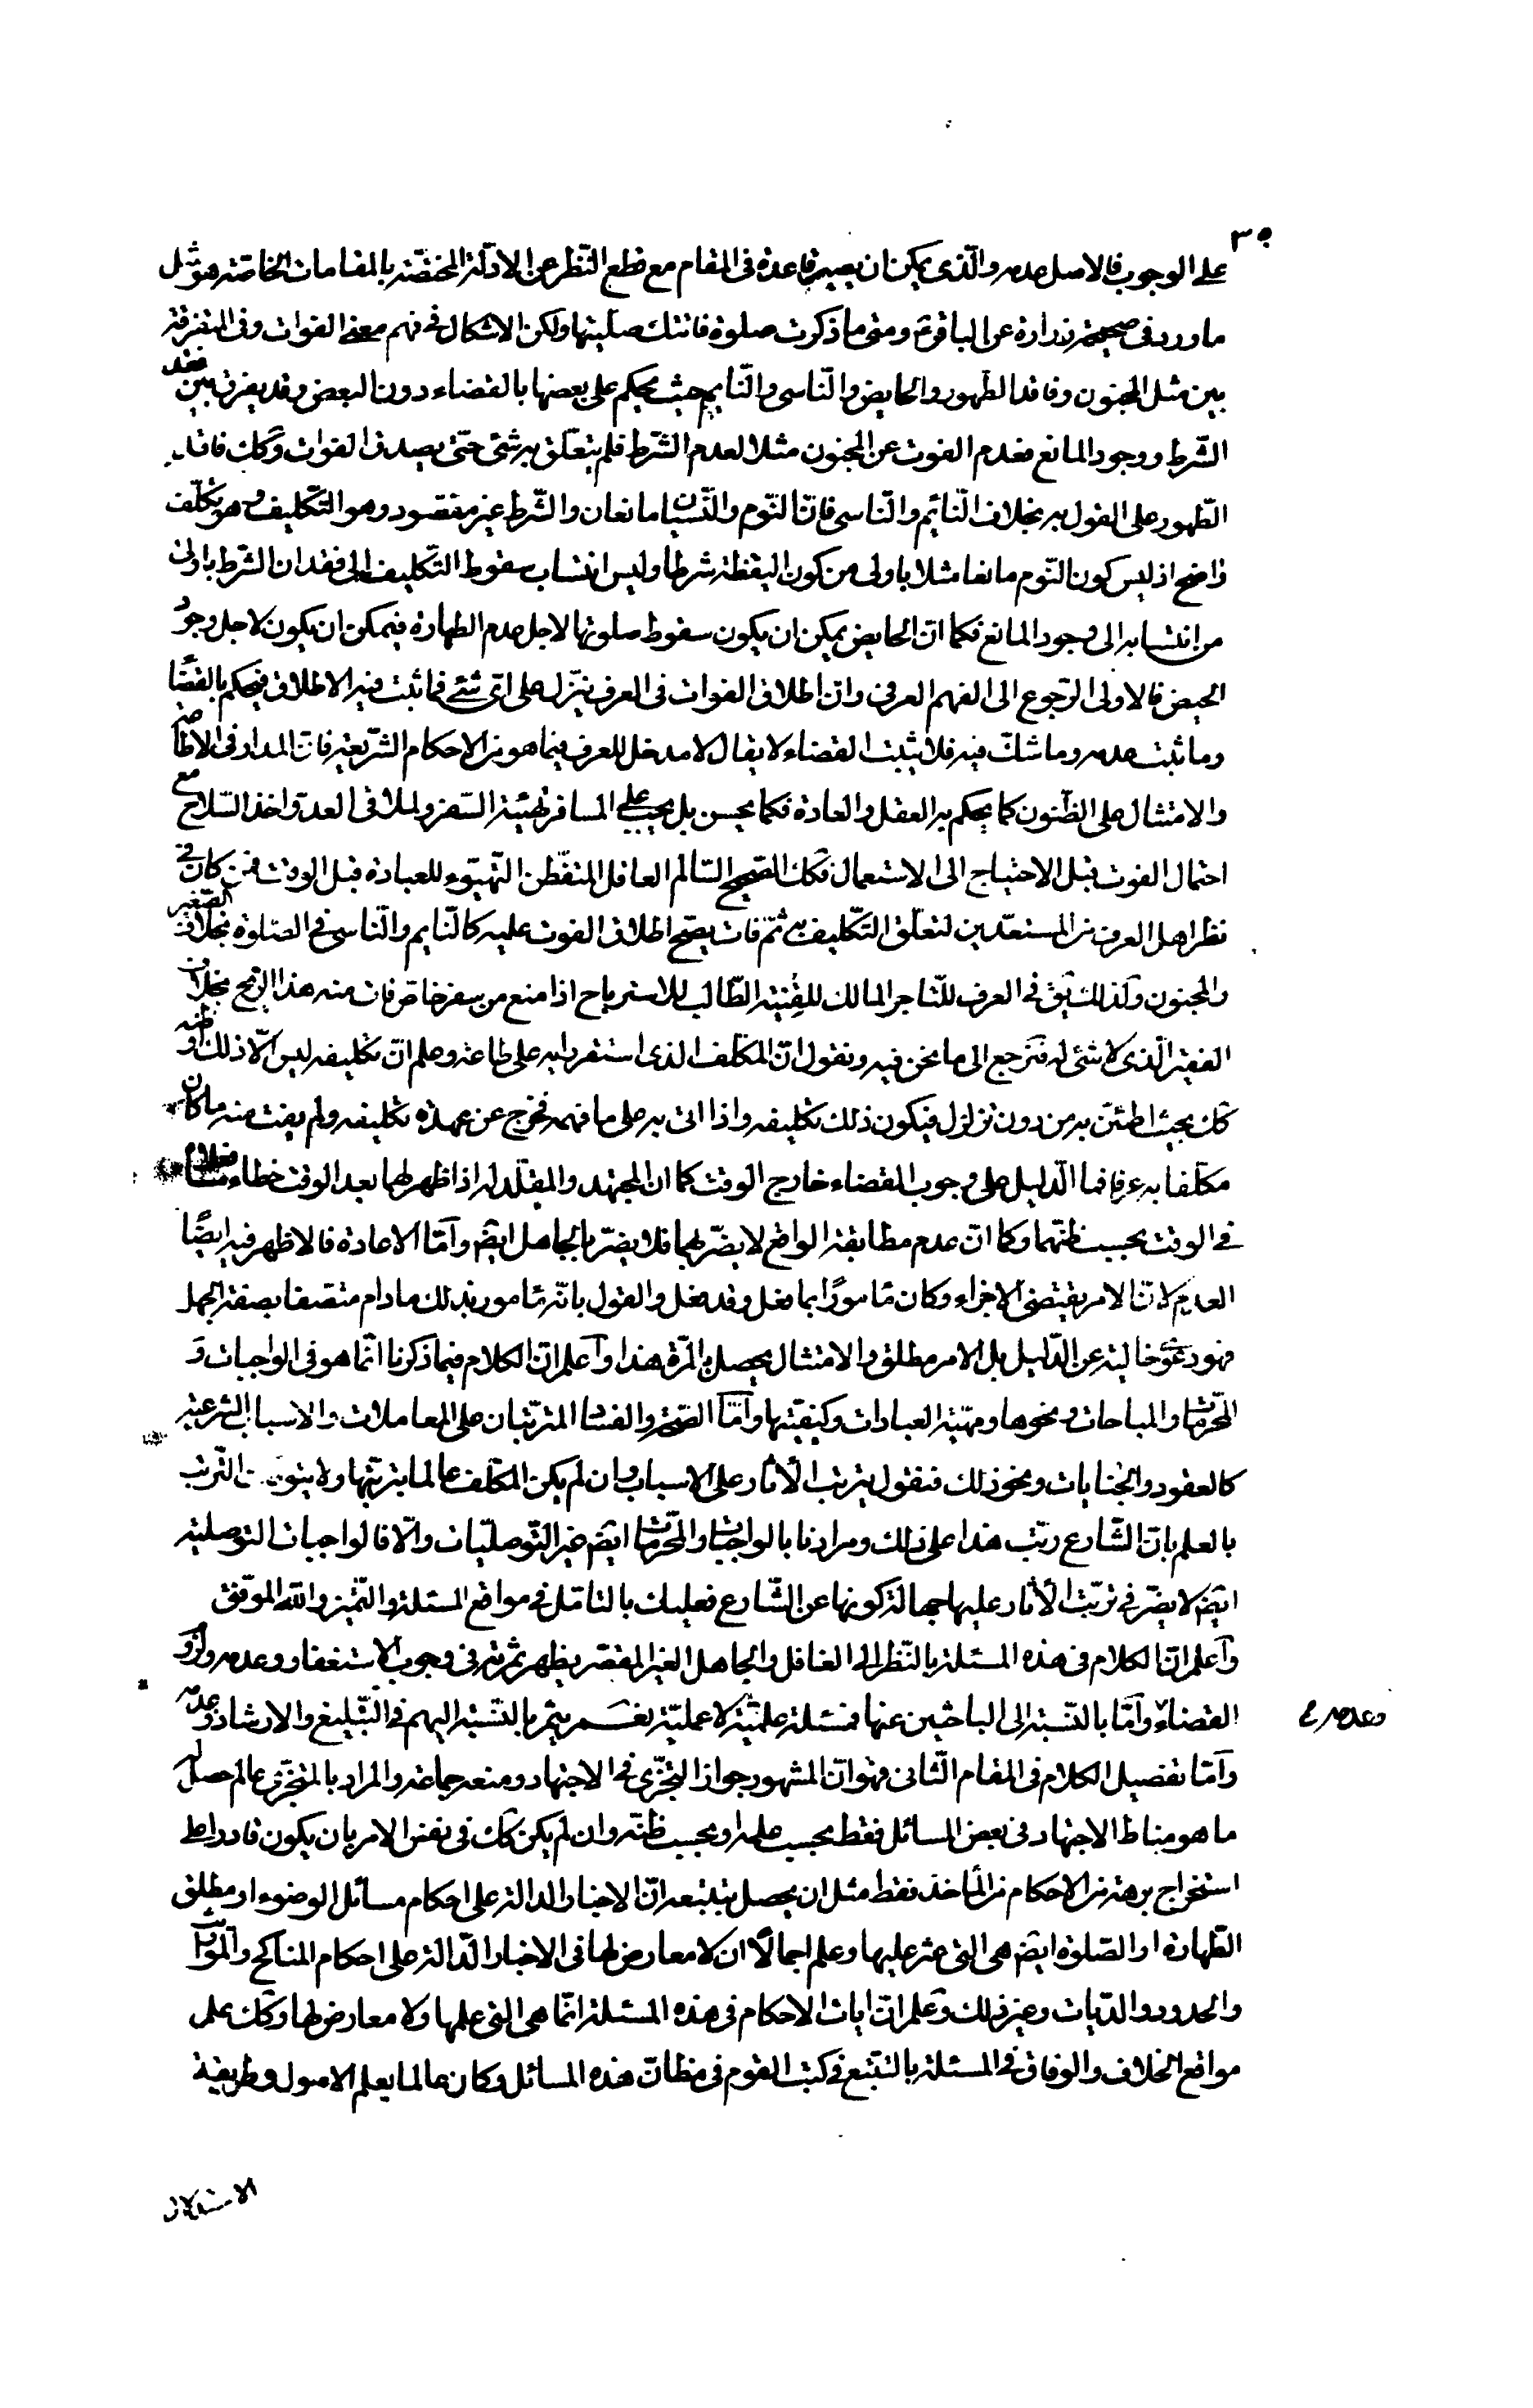 ٣٥
على الوجوب فالاصل عدمه والّذى يمكن ان يصير قاعدة فى المقام مع قطع النّظر عن الادلّة المختصّة بالمقامات الخاصّة هو مثل
ما ورد فى صحيحة زرارة عن الباقر ع ومتى ما ذكرت صلوة فاتتك صلّيتها ولكن الاشكال فى فهم معنى الفوات وفى التفرقة
بين مثل المجنون وفاقد الطّهور والحايض والنّاسى والنّايم حيث يحكم على بعضها بالقضاء دون البعض وقد يفرق بين فقد
الشّرط ووجود المانع فعدم الفوت عن المجنون مثلا لعدم الشّرط فلم يتعلّق به شئ حتّى يصدق الفوات وكك فاقد
الطّهور على القول به بخلاف النّائم والنّاسى فانّ النّوم والنّسيان مانعان والشّرط غير مفقود وهو التّكليف وهو تكلّف
واضح اذ ليس كون النّوم مانعا مثلا باولى من كون اليقظة شرطا وليس انتساب سقوط التّكليف الى فقدان الشّرط باولى
من انتسابه الى وجود المانع فكما انّ الحايض يمكن ان يكون سقوط صلوتها لاجل عدم الطهارة فيمكن ان يكون لاجل وجود
الحيض فالاولى الرّجوع الى الفهم العرفى وانّ اطلاق الفوات فى العرف ينزّل على اىّ شئ فما ثبت فيه الاطلاق فيحكم بالقضاء
وما ثبت عدمه وما شكّ فيه فلا يثبت القضاء لا يقال لا مدخل للعرف فيما هو من الاحكام الشّرعيّة فانّ المدار فى الاطاعة
والامتثال على الظّنون كما يحكم به العقل والعادة فكما يحسن بل يجب على المسافر تهيئة السّفر ولملاقى العدوّ اخذ السّلاح مع
احتمال الفوت قبل الاحتياج الى الاستعمال فكك الصّحيح السّالم العاقل المتفطّن التّهيّوء للعبادة قبل الوقت فمن كان فى
نظر اهل العرف من المستعدّين لتعلّق التّكليف به ثمّ فات يصحّ اطلاق الفوت عليه كالنّايم والنّاسى فى الصّلوة بخلاف الصّغير
والمجنون وكذلك يق فى العرف للتّاجر المالك للقنية الطّالب للاسترباح اذا منع من سفر خاصّ فات منه هذا الرّبح بخلاف
الفقير الّذى لا شئ له فنرجع الى ما نحن فيه ونقول انّ المكلّف الذى استقر رايه على طاعة وعلم انّ تكليفه ليس الّا ذلك او ظنّه
كك بحيث اطمئنّ به من دون تزلزل فيكون ذلك تكليفه واذا اتى به على ما فهمه فخرج عن عهدة تكليفه ولم يفت منه ما كان
مكلّفا به عرفا فما الّدليل على وجوب القضاء خارج الوقت كما ان المجتهد والمقلّد له اذا ظهر لهما بعد الوقت خطاء ما فعلاه
فى الوقت بحسب ظنّهما وكما انّ عدم مطابقة الواقع لا يضرّ لهما فلا يضرّ بالجاهل ايضا وامّا الاعادة فالاظهر فيه ايضًا
العدم لانّ الامر يقتضى الاجزاء وكان مامورًا بما فعل وقد فعل والقول بانّه مامور بذلك ما دام متّصفا بصفة الجهل
فهو دعوى خالية عن الدّليل بل الامر مطلق والامتثال يحصل بالمرّة هذا واعلم انّ الكلام فيما ذكرنا انّما هو فى الواجبات و
المحرّمات والمباحات ونحوها ومهيّة العبادات وكيفيّتها وامّا الصّحة والفساد المترتّبان على المعاملات والاسباب الشرعيّة
كالعقود والجنايات ونحو ذلك فنقول يترتب الأثار على الاسباب وان لم يكن المكلّف عالما بترتّبها ولا يتوقف التّرتب
بالعلم بانّ الشّارع رتّب هذا على ذلك ومرادنا بالواجبات والمحرّمات ايضا غير التّوصليّات والّا فالواجبات التوصليّة
ايضا لا يضرّ فى ترتّب الأثار عليها جهالة كونها عن الشّارع فعليك بالتامّل فى مواقع المسئلة والتّميز والله الموفّق
واعلم انّ الكلام فى هذه المسئلة بالنّظر الى الغافل والجاهل الغير المقصّر يظهر ثمرته فى وجوب الاستغفار وعدمه ولزوم
القضاء وامّا بالنّسبة الى الباحثين عنها فمسئلة علميّة لا عمليّة نعم يثمر بالنّسبة اليهم فى التّبليغ والارشاد وعدمه
وعدمه
وامّا تفصيل الكلام فى المقام الثّانى فهو انّ المشهور جواز التجزّى فى الاجتهاد ومنعه جماعة والمراد بالمتجزّى عالم حصل له
ما هو مناط الاجتهاد فى بعض المسائل فقط بحسب علمه او بحسب ظنّه وان لم يكن كك فى نفس الامر بان يكون قادرا على
استخراج برهة من الاحكام من المأخذ فقط مثل ان يحصل بتتبعه انّ الاخبار الدالة على احكام مسائل الوضوء او مطلق
الطّهارة او الصّلوة ايضا هى التى عثر عليها وعلم اجمالًا ان لا معارض لها فى الاخبار الدّالة على احكام المناكح والمواريث
والحدود والدّيات وغير ذلك وعلم انّ ايات الاحكام فى هذه المسئلة انّما هى التى علمها ولا معارض لها وكك علم
مواقع الخلاف والوفاق فى المسئلة بالتتبّع فى كتب القوم فى مظانّ هذه المسائل وكان عالما بعلم الاصول وطريقة
الاستدلال